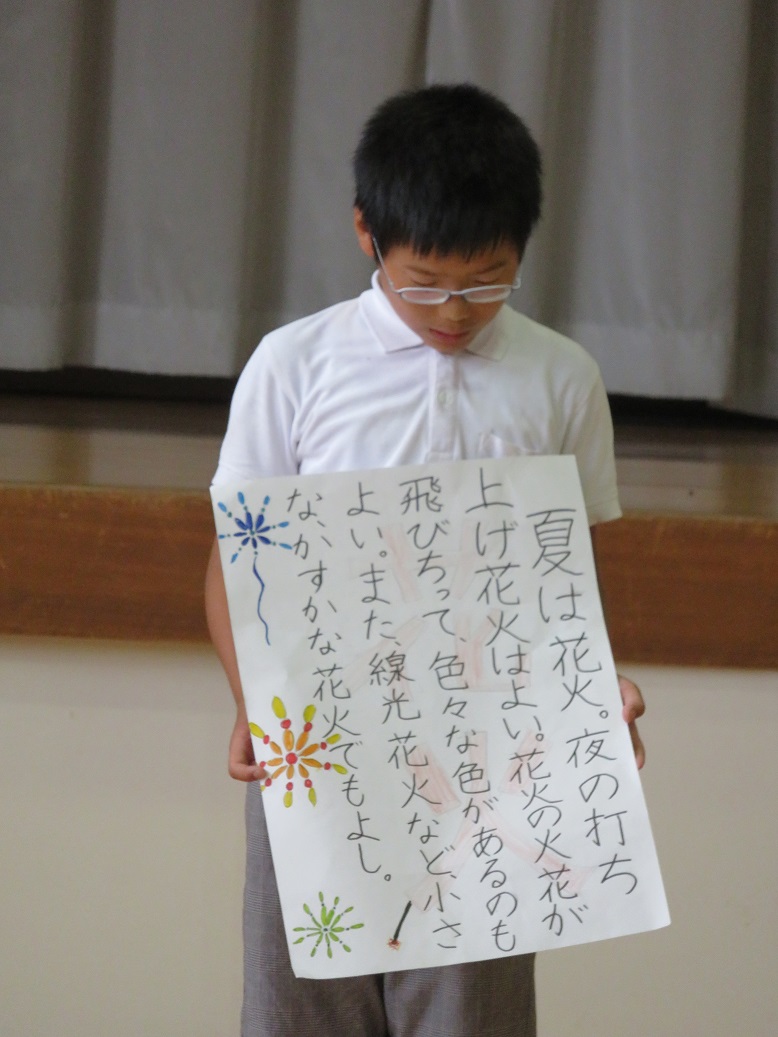 夏は花火。夜の打ち
上げ花火はよい。花火の火花が
飛びちって、色々な色があるのも
よい。また、線光花火など、小さ
な、かすかな花火でもよし。